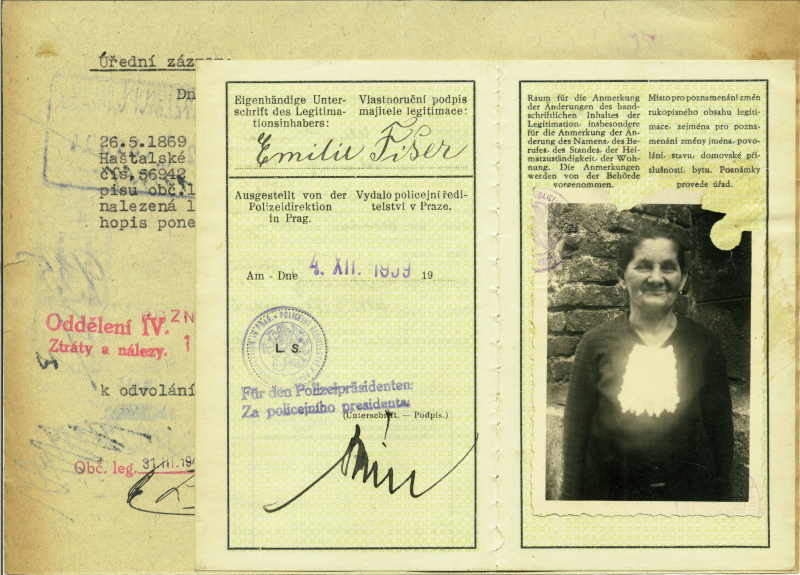 Úřední
Dn
26.5.1869
Haštalské
čís.56942
pisu obč.l
nalezená l
hopis pone
Oddělení IV.
Ztráty a nálezy.
k odvolání
Obč. leg. 31.III.19
Eigenhändige Unter-
schrift des Legitima-
tionsinhabers:
Vlastnoruční podpis
majitele legitimace:
Emilie Fišer
Ausgestellt von der
Polizeidirektion
in Prag.
Vydalo policejní ředi-
telství v Praze.
Am - Dne 4. XII. 1939 19
L. S.
Für den Polizeipräsidenten:
Za policejního presidenta:
(Unterschrift. — Podpis.)
Raum für die Anmerkung
der Änderungen des hand-
schriftlichen Inhaltes der
Legitimation, insbesondere
für die Anmerkung der Än-
derung des Namens, des Be-
rufes, des Standes, der Hei-
matzuständigkeit, der Woh-
nung. Die Anmerkungen
werden von der Behörde
vorgenommen.
Místo pro poznamenání změn
rukopisného obsahu legiti-
mace, zejména pro pozna-
menání změny jména, povo-
lání, stavu, domovské pří-
slušnosti, bytu. Poznámky
provede úřad.